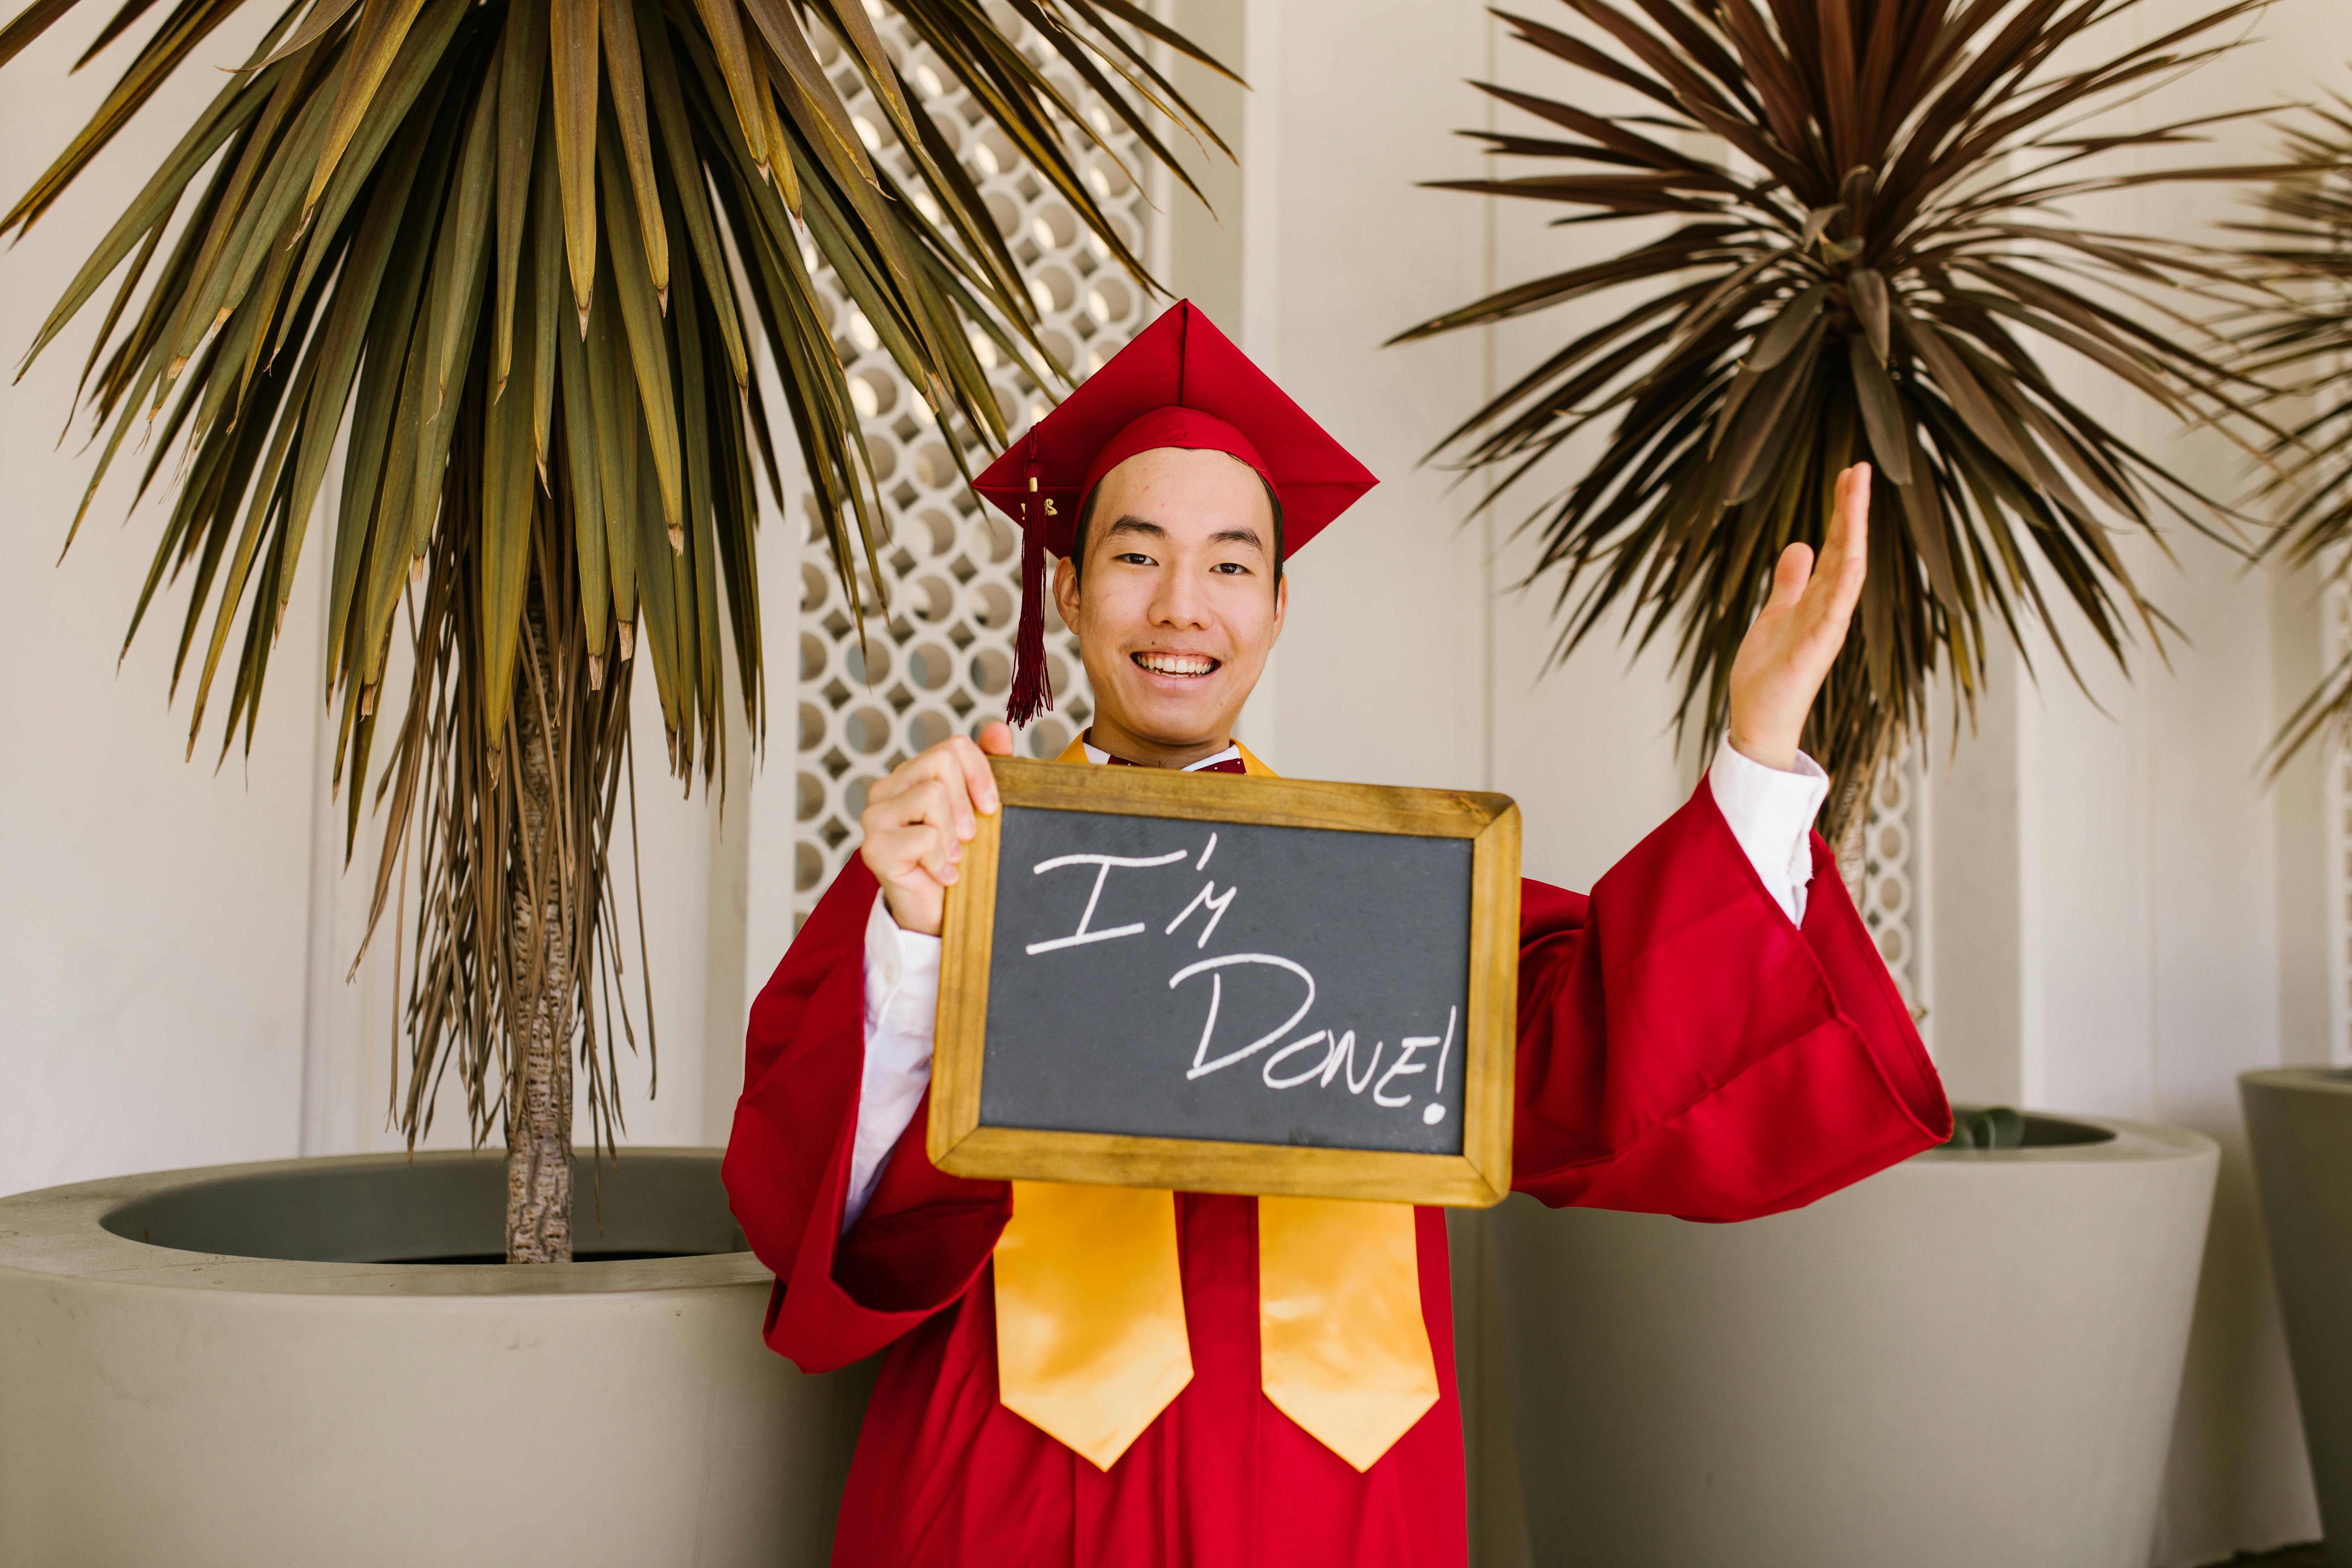 I'M
DONE!